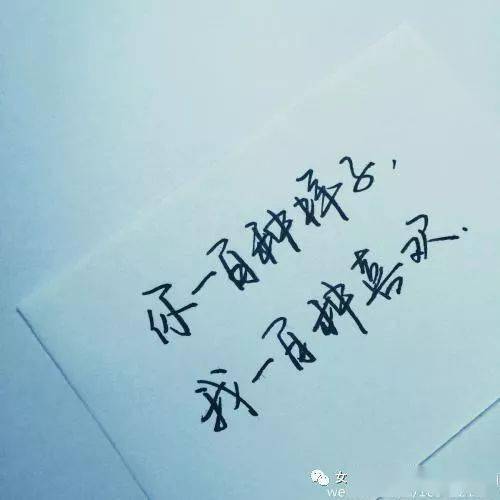 你一百种样子，
我一百种喜欢.
女